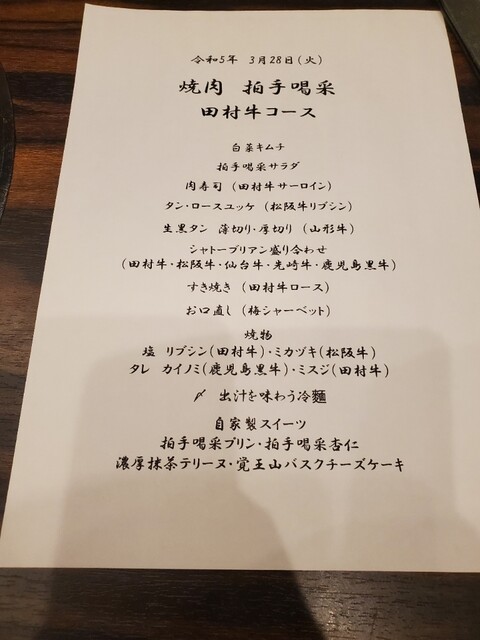 令和5年 3月28日(火)
焼肉 拍手喝采
田村牛コース
白菜キムチ
拍手喝采サラダ
肉寿司(田村牛サーロイン)
タン・ロースユッケ(松阪牛リブシン)
生黒タン 薄切り・厚切り(山形牛)
シャトーブリアン盛り合わせ
(田村牛・松阪牛・仙台牛・尾崎牛・鹿児島黒牛)
すき焼き(田村牛ロース)
お口直し(梅シャーベット)
焼物
塩 リブシン(田村牛)・ミカヅキ(松阪牛)
タレ カイノミ(鹿児島黒牛)・ミスジ(田村牛)
〆 出汁を味わう冷麺
自家製スイーツ
拍手喝采プリン・拍手喝采杏仁
濃厚抹茶テリーヌ・覚王山バスクチーズケーキ